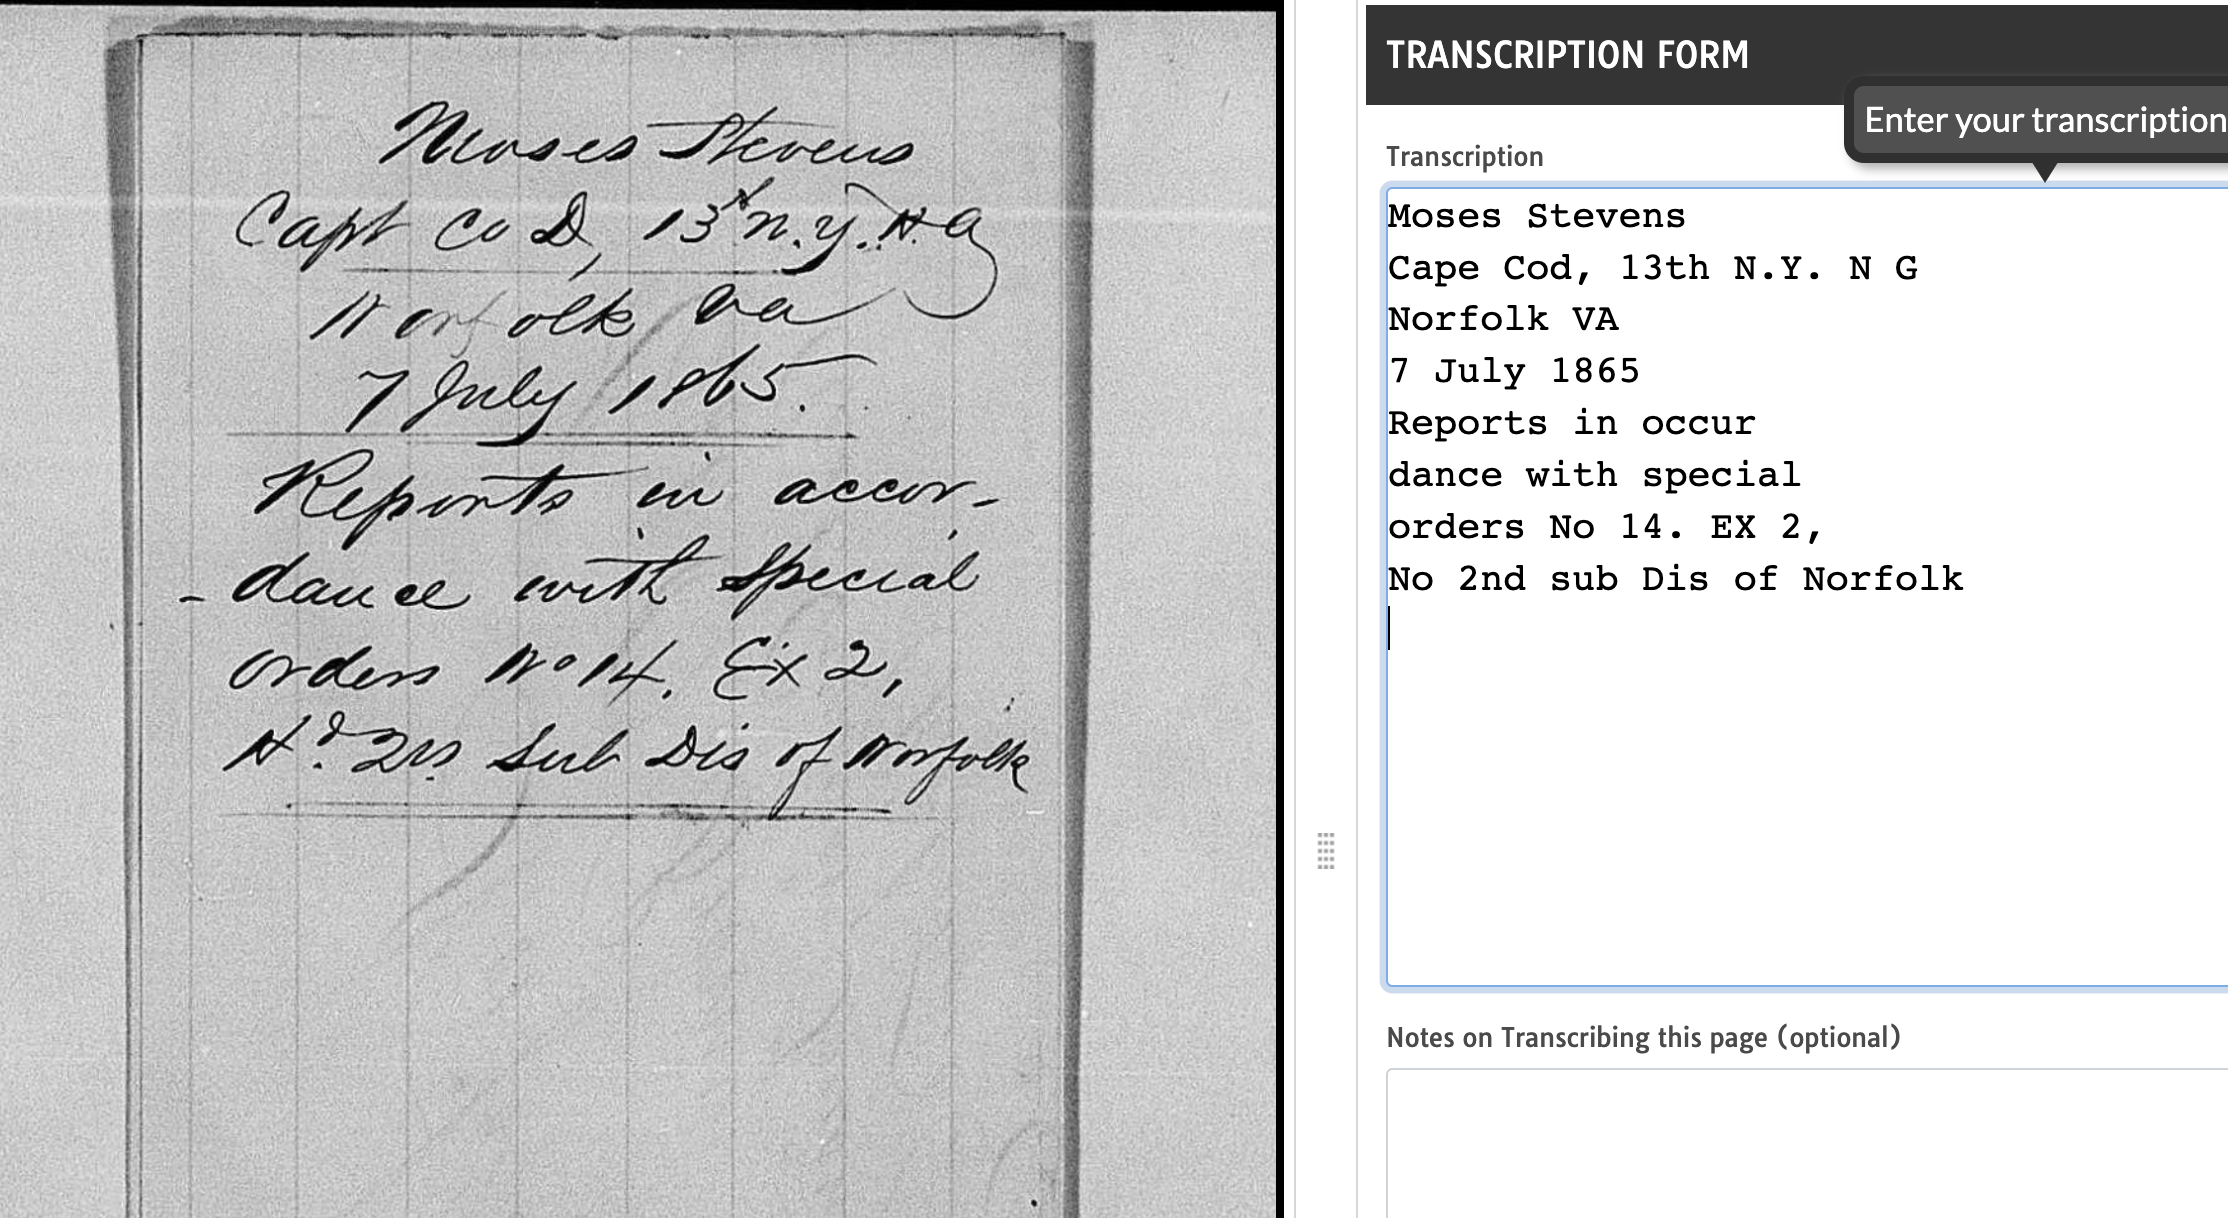 Moses Stevens
Capt Co D, 13th N.Y. H.A
Norfolk Va
7 July 1865.
Reports in accor-
-dance with Special
orders No 14. Ex 2,
Hd. Qrs Sub Dis of Norfolk
TRANSCRIPTION FORM
Enter your transcription
Transcription
Moses Stevens
Cape Cod, 13th N.Y. N G
Norfolk VA
7 July 1865
Reports in occur
dance with special
orders No 14. EX 2,
No 2nd sub Dis of Norfolk
Notes on Transcribing this page (optional)